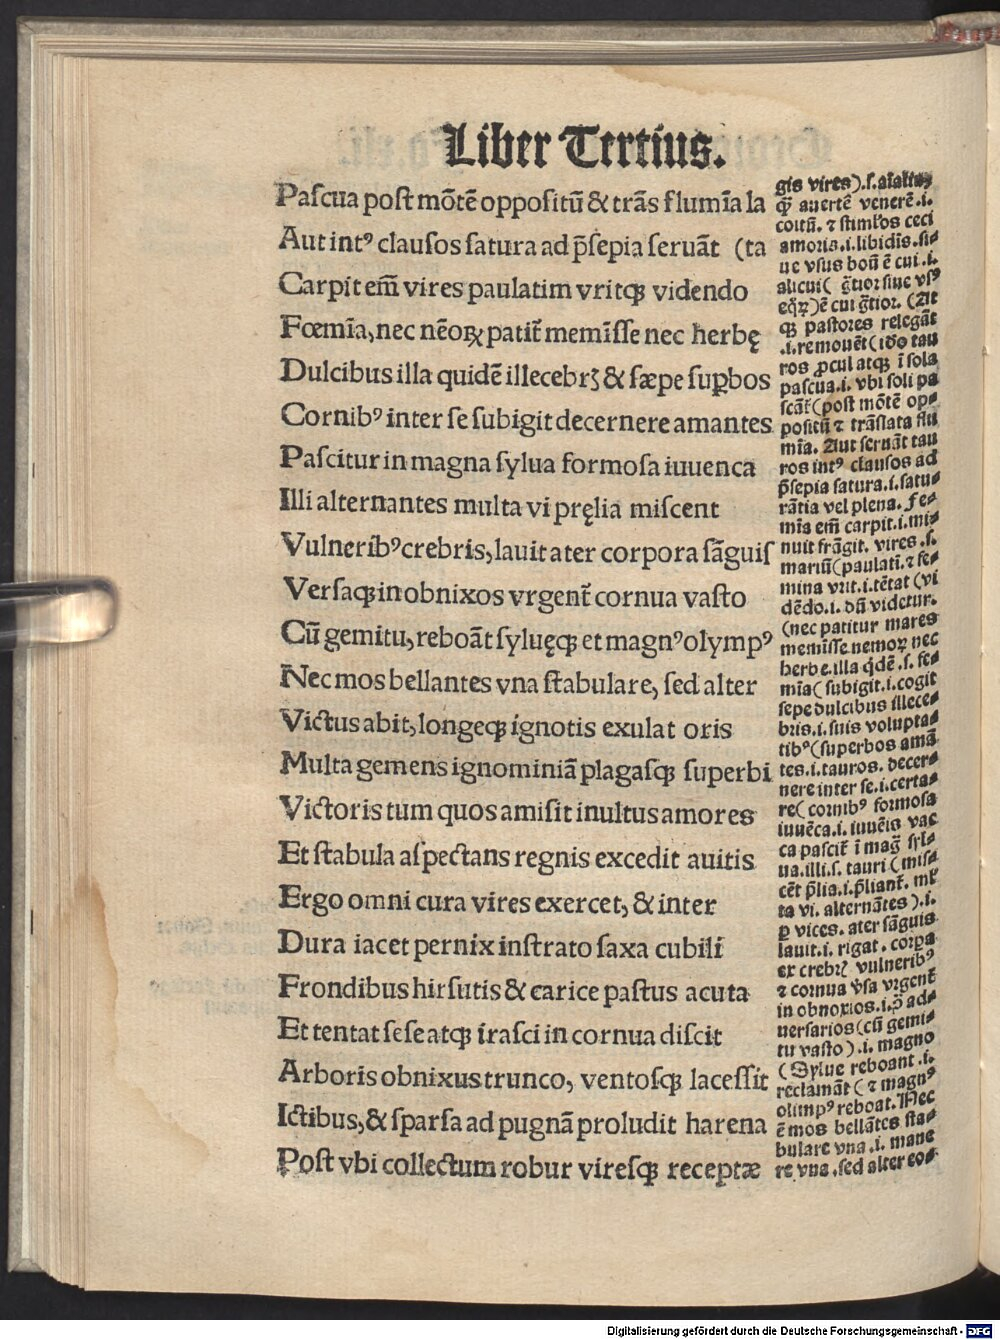 Liber Tertius.
Paſcua poſt mõtẽ oppoſitũ & trãs flumĩa la
Aut intꝰ clauſos ſatura ad p̃ſepia ſeruãt (ta
Carpit em̃ vires paulatim vritqꝫ videndo
Fœmĩa, nec nẽoꝝ patit̃ memĩſſe nec herbę
Dulcibus illa quidẽ illecebrꝫ & ſæpe ſuꝑbos
Cornibꝰ inter ſe ſubigit decernere amantes
Paſcitur in magna ſylua formoſa iuuenca
Illi alternantes multa vi pręlia miſcent
Vulneribꝰ crebris, lauit ater corpora ſãguiſ
Verſaqꝫ in obnixos vrgent̃ cornua vaſto
Cũ gemitu, reboãt ſyluęqꝫ et magnꝰ olympꝰ
Nec mos bellantes vna ſtabulare, ſed alter
Victus abit, longeqꝫ ignotis exulat oris
Multa gemens ignominiã plagaſqꝫ ſuperbi
Victoris tum quos amiſit inultus amores
Et ſtabula aſpectans regnis excedit auitis
Ergo omni cura vires exercet, & inter
Dura iacet pernix inſtrato ſaxa cubili
Frondibus hirſutis & carice paſtus acuta
Et tentat ſeſe atqꝫ iraſci in cornua diſcit
Arboris obnixus trunco, ventoſqꝫ laceſſit
Ictibus, & ſparſa ad pugnã proludit harena
Poſt vbi collectum robur vireſqꝫ receptæ
gis vires).ſ.
auertẽ venerẽ.i.
coitũ. ⁊ ſtimlos ceci
amoris.i.libidĩs.ſi⸗
ue vſus boũ ẽ cui.i.
alicui( g̃tior ſiue vſꝰ
ẽ cui g̃tior. (At
qꝫ paſtores relegãt
.i.remouẽt(ideo tau
ros ꝓcul atqꝫ ĩ ſola
paſcua.i. vbi ſoli pa
ſcãt̃(poſt mõtẽ op⸗
poſitũ ⁊ trãſlata flu
mĩa. Aut ſeruãt tau
ros intꝰ clauſos ad
p̃ſepia ſatura.i.ſatu⸗
rãtia vel plena. Fe⸗
mĩa em̃ carpit.i.mi⸗
nuit frãgit. vires .ſ.
mariũ(paulati.̃ ⁊ fe⸗
mina vrit.i.tẽtat (vi
dẽdo.i. dũ videtur.
(nec patitur mares
meminiſſe nemoꝝ nec
herbe.illa q̃dẽ .ſ. fe⸗
mĩa( ſubigit.i.cogit
ſepe dulcibus illece⸗
bris.i.ſuis volupta⸗
tibꝰ(ſuperbos amã
tes.i.tauros. decer⸗
nere inter ſe.i.certa⸗
re( cornibꝰ formoſa
iuuẽca.i. iuuẽis vac
ca paſcit̃ ĩ mag̃ ſyl⸗
ua.illi.ſ. tauri (miſ⸗
cẽt p̃lia.i.p̃liant̃. ml̃
ta vi. alternãtes ).i.
ꝑ vices. ater ſãguis
lauit.i. rigat . corꝑa
ex crebrꝭ vulneribꝰ
⁊ cornua vſa vrgent̃
in obnoxios.i.p̃ ad⸗
uerſarios(cũ gemi⸗
tu vaſto ).i. magno
( Sylue reboant .i.
reclamãt( ⁊ magnꝰ
olimpꝰ reboat. Nec
ẽ mos bellãtes ſta⸗
bulare vna .i. mane
re vna .ſed alter eo⸗
Digitalisierung gefördert durch die Deutsche Forschungsgemeinschaft - DFG